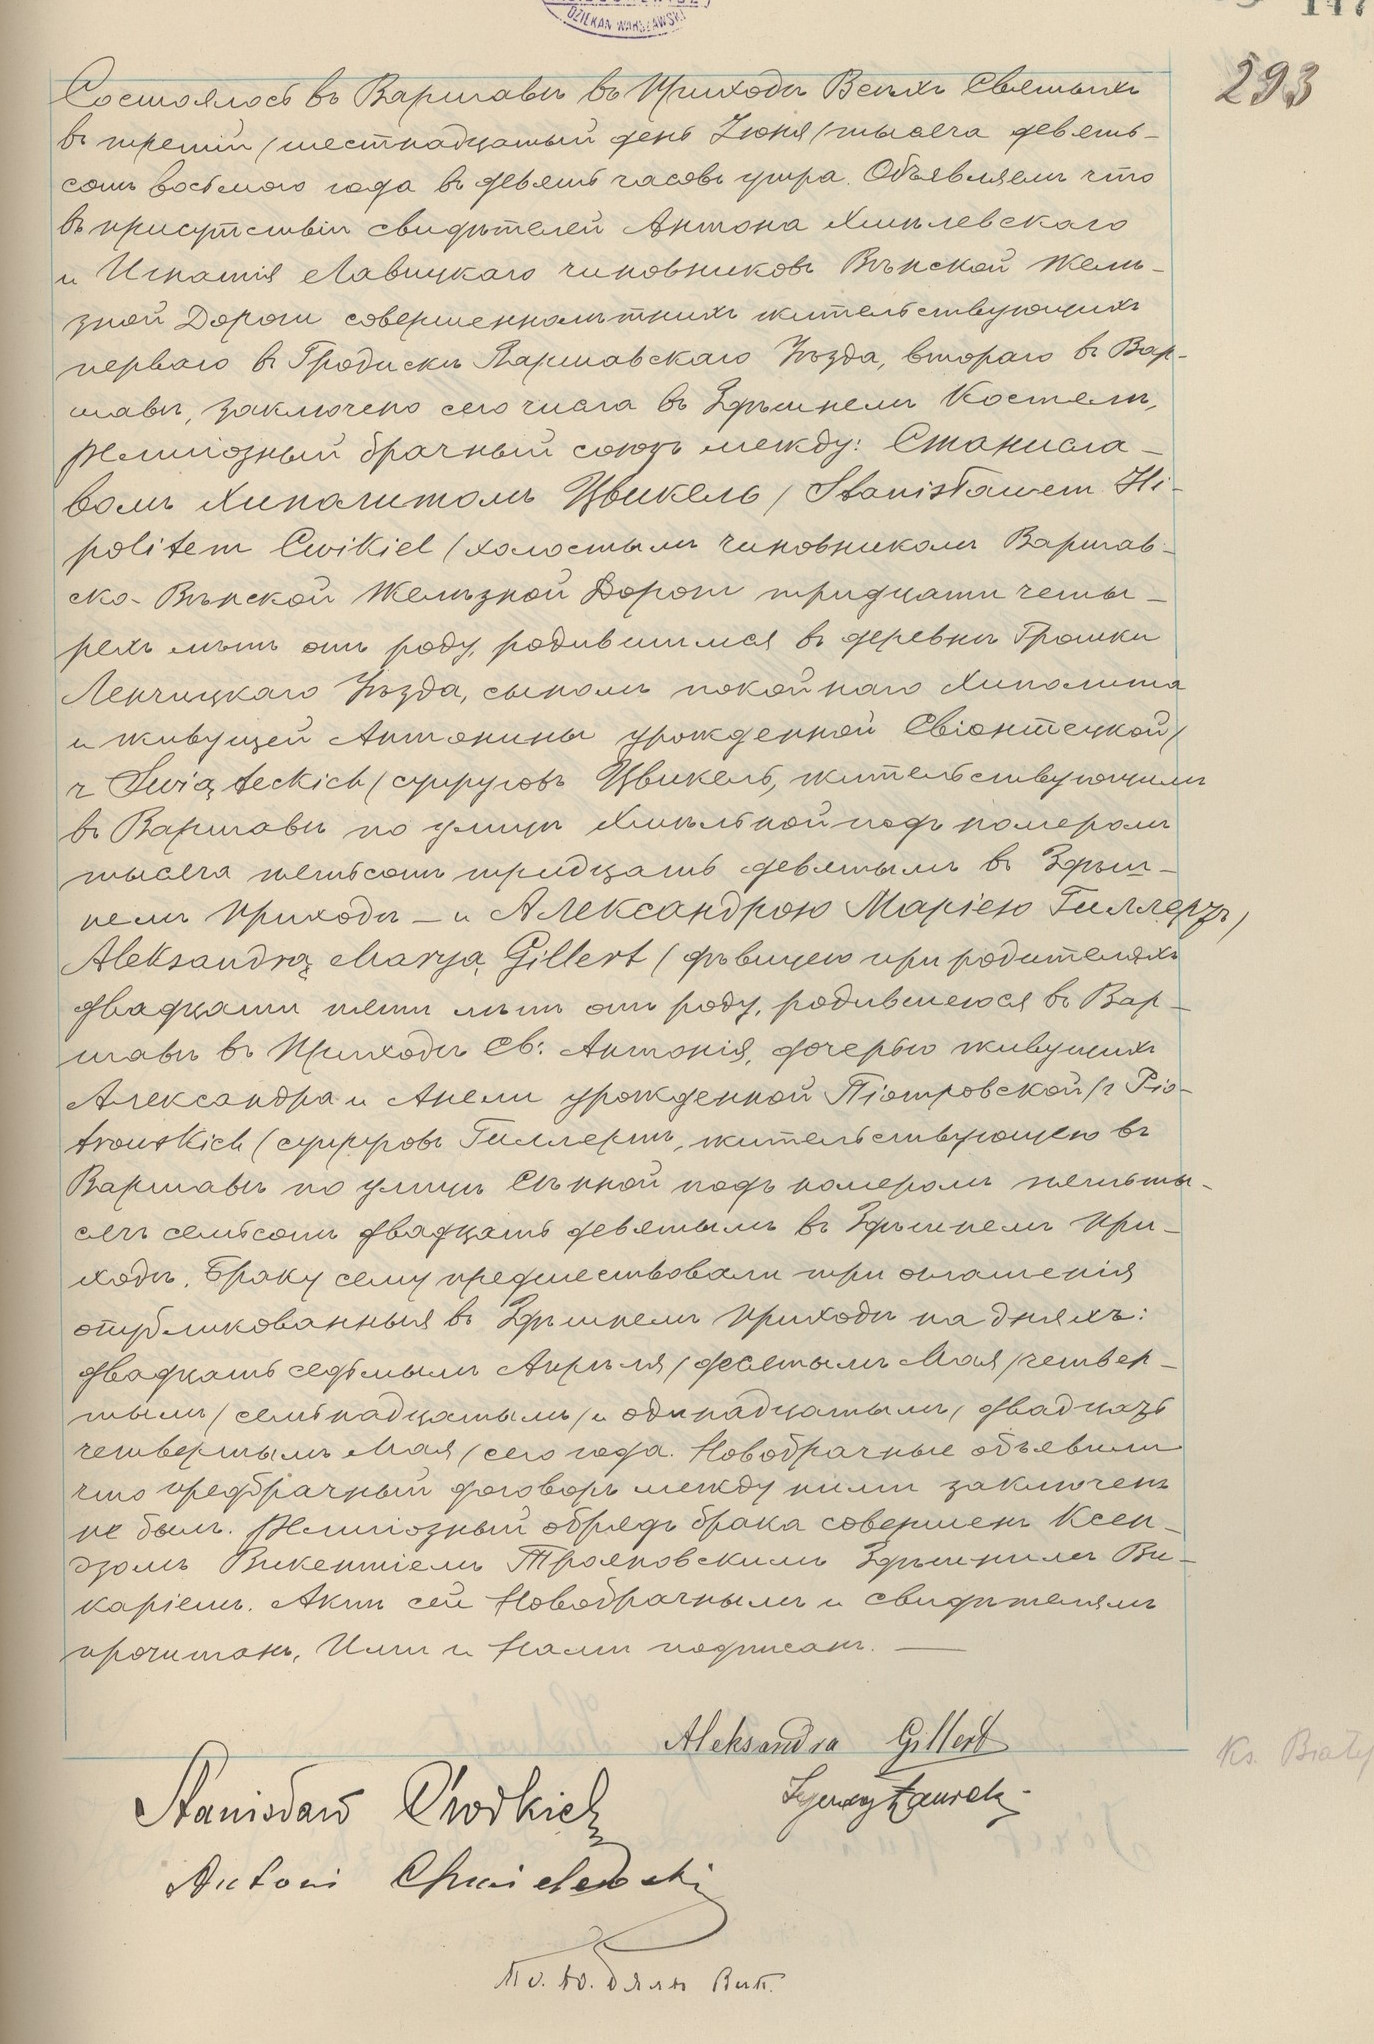 DZIEKAN WARSZAWSKI
147
293
Состоялось въ Варшавѣ въ Приходѣ Всѣхъ Святыхъ
въ третій /шестнадцатый день Іюня/ тысяча девять-
сотъ восьмого года въ девять часовъ утра. Объявляемъ что
въ присутствіи свидѣтелей Антона Хмѣлевскаго
и Игнатія Лавицкаго чиновниковъ Вѣнской Желѣ-
зной Дороги совершеннолѣтнихъ жительствующихъ
перваго въ Гродискѣ Варшавскаго Уѣзда, втораго въ Вар-
шавѣ, заключено сего числа въ Здѣшнемъ Костелѣ,
Религіозный брачный союзъ между: Станисла-
вомъ Хиполитомъ Цвикель / Stanisławem Hi-
politem Cwikiel / холостымъ чиновникомъ Варшав-
ско-Вѣнской Желѣзной Дороги тридцати четы-
рехъ лѣтъ отъ роду, родившимся въ деревнѣ Трошки
Ленчицкаго Уѣзда, сыномъ покойнаго Хиполита
и живущей Антонины урожденной Свіонтецкой /
z Świąteckich / супруговъ Цвикель, жительствующимъ
въ Варшавѣ по улицѣ Хмѣльной подъ номеромъ
тысяча пятьсотъ тридцать девятымъ въ Здѣш-
немъ Приходѣ – и Александрою Маріею Гиллертъ /
Aleksandrą Maryą Gillert / дѣвицею при родителяхъ
двадцати пяти лѣтъ отъ роду, родившеюся въ Вар-
шавѣ въ Приходѣ Св: Антонія, дочерью живущихъ
Александра и Анели урожденной Піотровской / z Pio-
trowskich / супруговъ Гиллертъ, жительствующею въ
Варшавѣ по улицѣ Сѣнной подъ номеромъ пятьты-
сячъ семьсотъ двадцать девятымъ въ Здѣшнемъ При-
ходѣ. Браку сему предшествовали три оглашенія
опубликованныя въ Здѣшнемъ Приходѣ на дняхъ:
двадцать седьмымъ Апрѣля /десятымъ Мая/ четвер-
тымъ /семьнадцатымъ/ и одинадцатымъ /двадцать
четвертымъ Мая/ сего года. Новобрачные объявили
что предбрачный договоръ между ними заключенъ
не былъ. Религіозный обрядъ брака совершенъ Ксен-
дзомъ Викентіемъ Трояновскимъ Здѣшнимъ Ви-
каріемъ. Актъ сей Новобрачнымъ и свидѣтелямъ
прочитанъ, Ими и Нами подписанъ. —
Aleksandra Gillert
Stanisław Ćwikiel
Antoni Chmielewski
Ks.